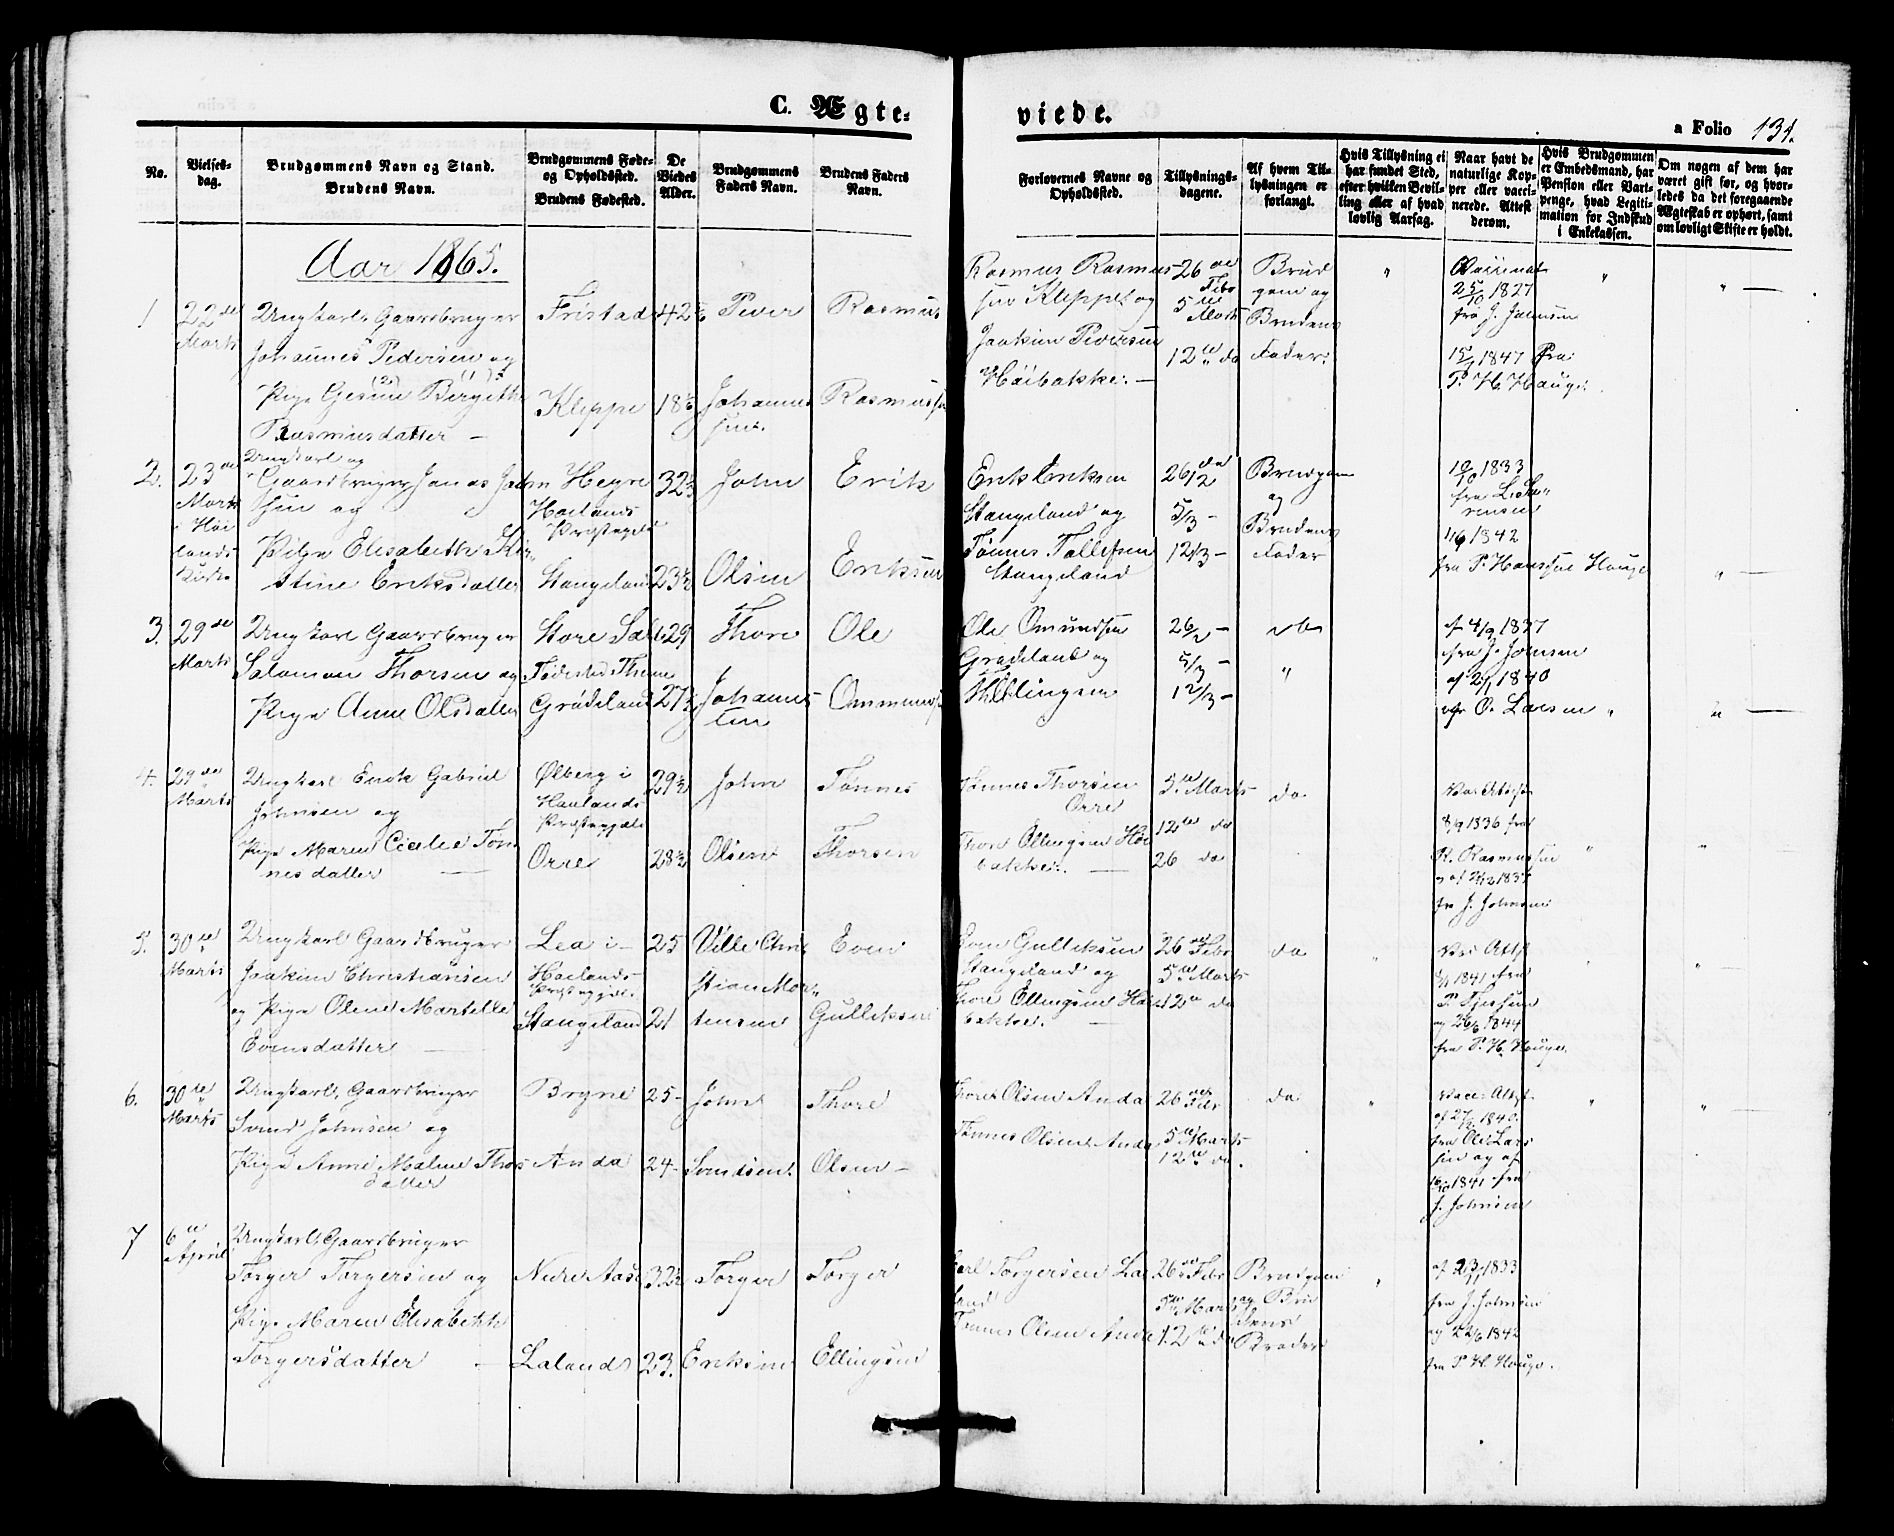 C. Ægte-
viede.
a Folio 131.
No.
Vielses-
dag.
Brudgommens Navn og Stand.
Brudens Navn.
Brudgommens Føde-
og Opholdssted.
Brudens Fødested.
De
Viedes
Alder.
Brudgommens
Faders Navn.
Brudens Faders
Navn.
Forlovernes Navne og
Opholdssted.
Tillysnings-
dagene.
Af hvem Til-
lysningen er
forlangt.
Hvis Tillysning ei
har fundet Sted,
efter hvilken Bevil-
ling eller af hvad
lovlig Aarsag.
Naar havt de
naturlige Kop-
per eller vacci-
nerede. Attest
derom.
Hvis Brudgommen
er Embedsmand, har
Pension eller Vart-
penge, hvad Legiti-
mation for Indskud
i Enkekassen.
Om nogen af dem har
været gift før, og hvor-
ledes da det foregaaende
Ægteskab er ophørt, samt
om lovligt Skifte er holdt.
Aar 1865.
1
22de
Marts
Ungkarl, Gaardbruger
Johannes Pedersen og
Pige Gesine (2) Bergithe (1)
Rasmusdatter —
Fristad
Kleppe
42
18½
Peder
Johannes
sen.
Rasmus
Rasmussen
Rasmus Rasmus-
sen Kleppe og
Joakim Pedersen
Høibakke. —
26de
Febr
5te
Marts
12te do
Brud
gom og
Brudens
Fader.
"
Vaccinat
25/10 1827
fra J. Johnsen
15/ 1847 fra
P. H. Hauge.
"
" —
2.
23de
Marts
i Høi
lands
Kirke
Ungkarl og
Gaardbruger Jonas John
sen og
Pige Elisabeth Kir-
stine Eriksdatter
Hegre
Høilands
Præstegjeld
Stangeland
32½
23½
John
Olsen
Erik
Eriksen
Erik Eriksen
Stangeland og
Tønnes Tollefsen
Stangeland
26/2
5/3 —
12/3 —
Brudgom
og
Brudens
Fader
10/10 1833
fra L. Sø-
rensen
4/9 1842
fra P. Hanssen Hauge
" —
3.
29de
Marts
Ungkarl Gaardbruger
Salomon Thorsen og
Pige Anne Olsdatter
Store Sæl
Fødested Thime
Grødeland
29
27½
Thore
Johannes
sen
Ole
Ommundsen
Ole Omundsen
Grødeland og
Th. Ellingsen
26/2 —
5/3 —
12/3 —
do
"
af 4/9 1837
fra J. Johnsen
af 2/1 1840
af O. Larsen
"
" —
4.
29de
Marts
Ungkarl Enok Gabriel
Johnsen og
Pige Maren Cecilie Tøn
nesdatter —
Ølberg i
Haalands
Præstegjeld
Orre
29½
28½
John
Olsen
Tønnes
Thorsen
Tønnes Thorsen
Orre
Thore Ellingsen Høi
bakke. —
5te Marts
12te do
26 do
do
Vac. Attest
8/9 1836 fra
R. Rasmussen
og af 2/12 1837
fra J. Johnsen
"
"
5.
30te
Marts
Ungkarl Gaardbruger
Joakim Christiansen
og Pige Olene Martelle
Evensdatter —
Lea i
Høilands
Præstegjeld.
Stangeland
25
21
Ville Chri
stian Mor-
tensen
Even
Gulleksen
Even Gulleksen
Stangeland og
Thore Ellingsen Høi
bakke. —
26de Febr
5te Marts
12te do
do
"
Vac. Attst
1841 fra
P. Tjessem
og 26/6 1844
fra P. H. Hauge
"
" —
6.
30te
Marts
Ungkarl, Gaardbruger
Svend Johnsen og
Pige Anne Malene Thors
datter
Bryne
Anda
25
24
John
Svendsen.
Thore
Olsen —
Thore Olsen Anda
Tønnes Olsen Anda
26de Febr
5te Marts
12te do.
do
"
Vacc. Attst.
af 27/2 1840
fra Ole Lars
sen og af
16/10 1841 fra
J. Johnsen
"
" —
7
6te
April
Ungkarl, Gaardbruger
Torger Torgersen og
Pige Maren Elisabeth
Torgersdatter —
Nedre Aase
Laland
32½
23.
Torger
Eriksen
Torger
Ellingsen
Torgersen La
land
Tønnes Olsen Anda
26de Febr
5te Marts
12te do
Brudgom
og Bru
dens
Broder
"
af 23/11 1833
fra J. Johnsen
og 22/6 1842
fra P. H. Hauge.